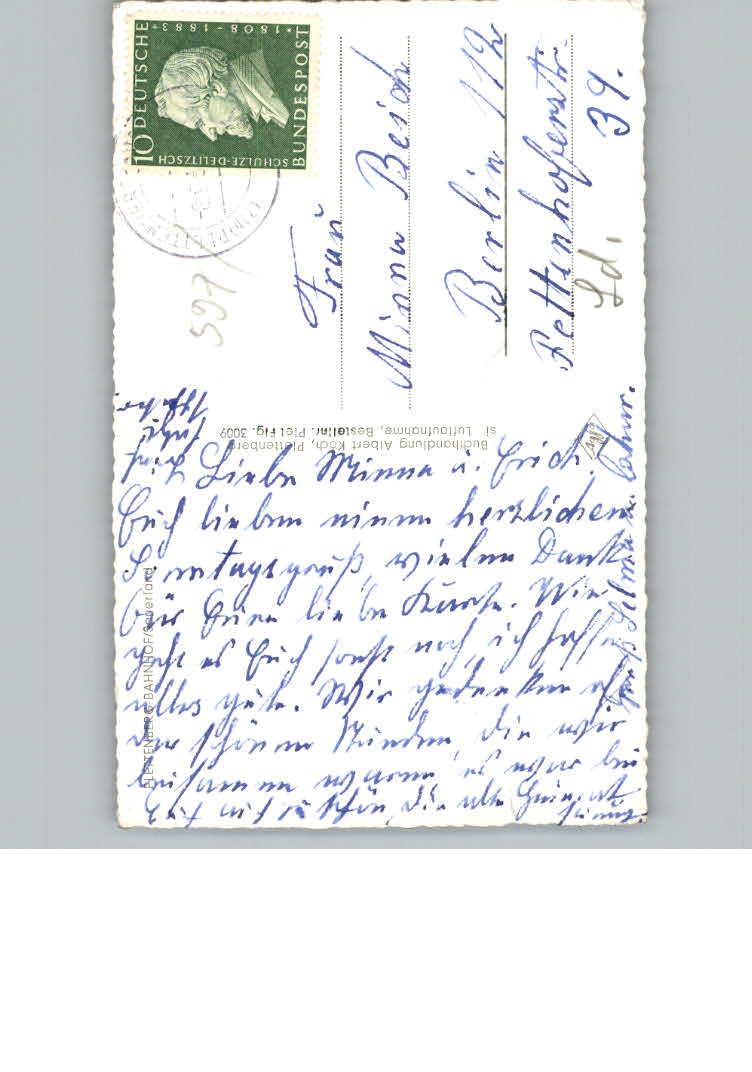 10 DEUTSCHE
BUNDESPOST
* 1808 - 1883 +
SCHULZE-DELITZSCH
597
Frau
Minna Besch
Berlin 112
Pettenhoferstr.
39.
Buchhandlung Albert Koch, Plettenberg
si Luftaufnahme, Bestellnr. Plet Fig. 3009
Agfa
PLETTENBERG-BAHNHOF/Sauerland
Liebe Minna u. Erich.
Euch lieben einen herzlichen
Sonntagsgruß, vielen Dank
für Eure liebe Karte. Wie
geht es Euch sonst noch, ich hoffe
alles gute. Wir gedenken oft
der schönen Stunden, die wir
beisamen waren, es war bei
Euch auch so schön, die alte Heimat
Gruß Selma